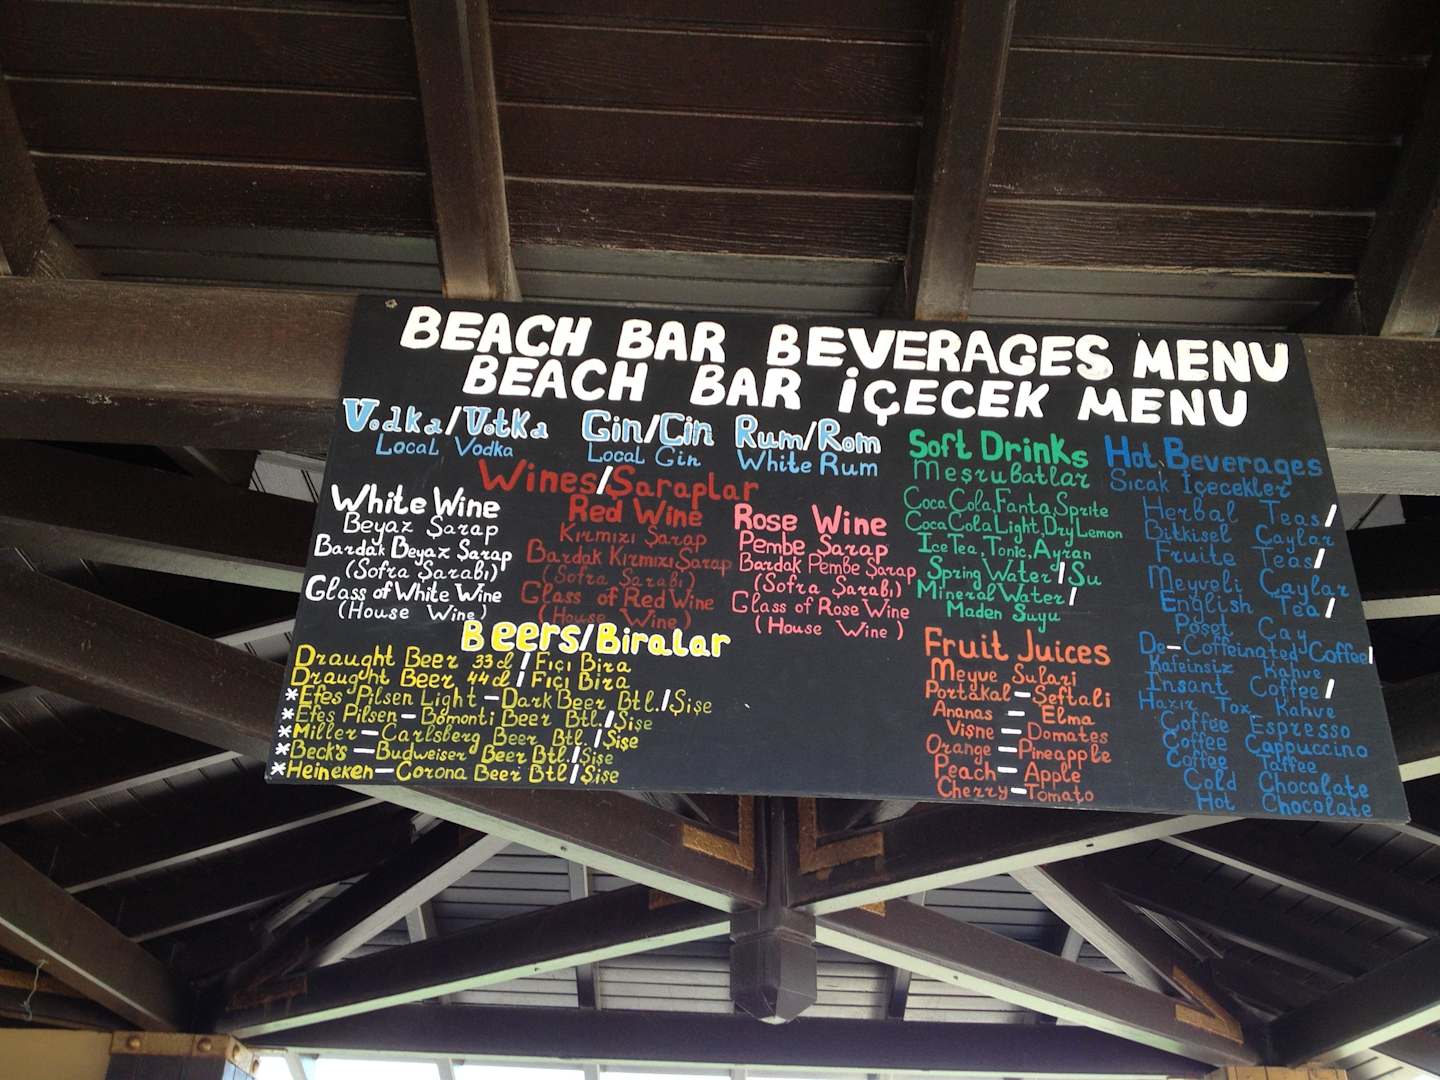 BEACH BAR BEVERAGES MENU
BEACH BAR İÇECEK MENU
Vodka/Votka
Local Vodka
Gin/Cin
Local Gin
Rum/Rom
White Rum
Wines/Şaraplar
White Wine
Beyaz Şarap
Bardak Beyaz Şarap
(Sofra Şarabı)
Glass of White Wine
(House Wine)
Red Wine
Kırmızı Şarap
Bardak Kırmızı Şarap
(Sofra Şarabı)
Glass of Red Wine
(House Wine)
Rose Wine
Pembe Şarap
Bardak Pembe Şarap
(Sofra Şarabı)
Glass of Rose Wine
(House Wine)
Beers/Biralar
Draught Beer 33cl/Fıçı Bira
Draught Beer 44cl/Fıçı Bira
*Efes Pilsen Light-Dark Beer Btl./Şişe
*Efes Pilsen-Bomonti Beer Btl./Şişe
*Miller-Carlsberg Beer Btl./Şişe
*Beck's-Budweiser Beer Btl/Şişe
*Heineken-Corona Beer Btl/Şişe
Soft Drinks
Meşrubatlar
Coca Cola, Fanta, Sprite
Coca Cola Light, Dry Lemon
Ice Tea, Tonic, Ayran
Spring Water/Su
Mineral Water/
Maden Suyu
Fruit Juices
Meyve Suları
Portakal-Şeftali
Ananas - Elma
Vişne - Domates
Orange-Pineapple
Peach-Apple
Cherry-Tomato
Hot Beverages
Sıcak İçecekler
Herbal Teas/
Bitkisel Çaylar
Fruite Teas/
Meyveli Çaylar
English Tea/
Poşet Çay
De-Coffeinated Coffee/
Kafeinsiz Kahve
Insant Coffee/
Hazır Toz Kahve
Coffee Espresso
Coffee Cappuccino
Coffee Toffee
Cold Chocolate
Hot Chocolate